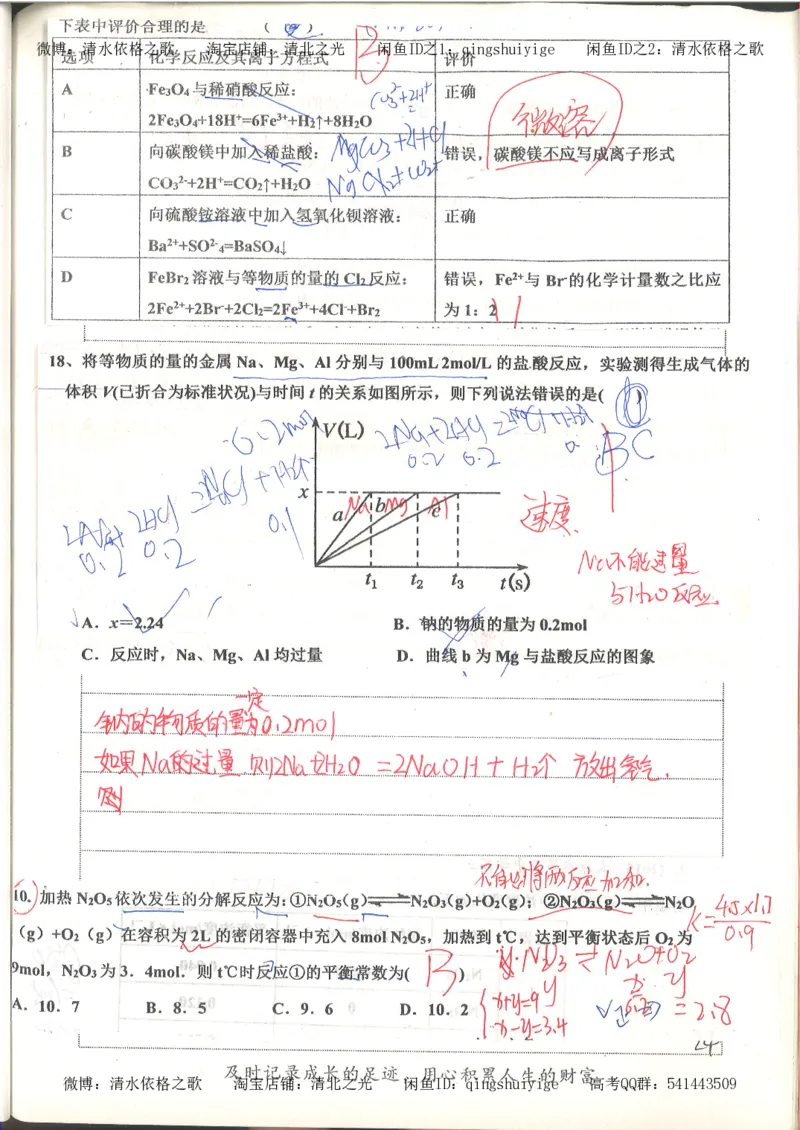 下表中评价合理的是 （ ）
微博：清水依格之歌 淘宝店铺：清北之光 闲鱼ID之1：qingshuiyige 闲鱼ID之2：清水依格之歌
选项 化学反应及其离子方程式 评价
B
A Fe₃O₄与稀硝酸反应： 正确
2Fe₃O₄+18H⁺=6Fe³⁺+H₂↑+8H₂O
微溶
B 向碳酸镁中加入稀盐酸： 错误，碳酸镁不应写成离子形式
CO₃²⁻+2H⁺=CO₂↑+H₂O
C 向硫酸铵溶液中加入氢氧化钡溶液： 正确
Ba²⁺+SO²⁻₄=BaSO₄↓
D FeBr₂溶液与等物质的量的Cl₂反应： 错误，Fe²⁺与Br⁻的化学计量数之比应
2Fe²⁺+2Br⁻+2Cl₂=2Fe³⁺+4Cl⁻+Br₂ 为1：2
18、将等物质的量的金属Na、Mg、Al分别与100mL 2mol/L的盐酸反应，实验测得生成气体的
体积V(已折合为标准状况)与时间t的关系如图所示，则下列说法错误的是( )
0.2mol
V(L)
0.2 0.2
BC
x
a Na b Mg c Al
速度
0.2 0.2 0.1
Na不能过量
与H₂O反应
t₁ t₂ t₃ t(s)
A．x＝2.24 B．钠的物质的量为0.2mol
C．反应时，Na、Mg、Al均过量 D．曲线b为Mg与盐酸反应的图象
一定
钠的物质的量为0.2mol
如果Na的过量,则2Na+2H₂O =2NaOH+H₂↑ 放出氢气.
则
不能将两反应加和.
10. 加热N₂O₅依次发生的分解反应为：①N₂O₅(g)⇌N₂O₃(g)+O₂(g)；②N₂O₃(g)⇌N₂O
K=4.5×1.7/0.9
(g)+O₂(g)在容积为2L的密闭容器中充入8mol N₂O₅，加热到t℃，达到平衡状态后O₂为
9mol，N₂O₃为3．4mol．则t℃时反应①的平衡常数为( B )
N₂O₃⇌N₂O+O₂
x y y
A．10．7 B．8．5 C．9．6 D．10．2
x+y=9
x-y=3.4
=2.8
及时记录成长的足迹，用心积累人生的财富
微博：清水依格之歌 淘宝店铺：清北之光 闲鱼ID：qingshuiyige 高考QQ群：541443509